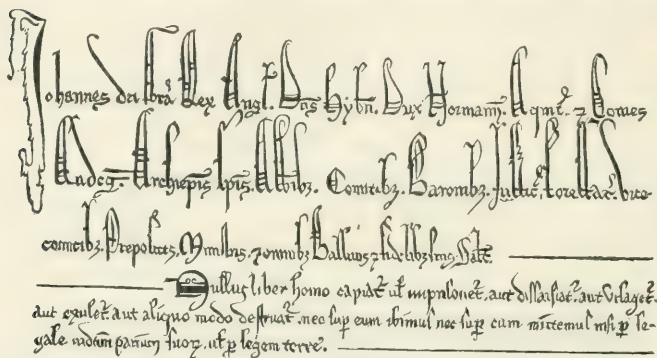 Johannes dei gra Rex Angl. Dns Hybn. Dux Normann. Aqnt. ⁊ Comes
Andeg. Archiepis Epis. Abbibz. Comitibz. Baronibz. Justic. Forestar. Vice
comitibz. Prepositis. Ministris. ⁊ omnibz Ballivis ⁊ fidelibz suis. Salt
Nullus liber homo capiat ul imprisonet. aut dissaisiat. aut Utlaget.
aut exulet. aut aliquo modo destruat. nec sup eum ibimus nec sup eum mittemus nisi p le
gale iudicium parium suoꝝ, ul p legem terre.